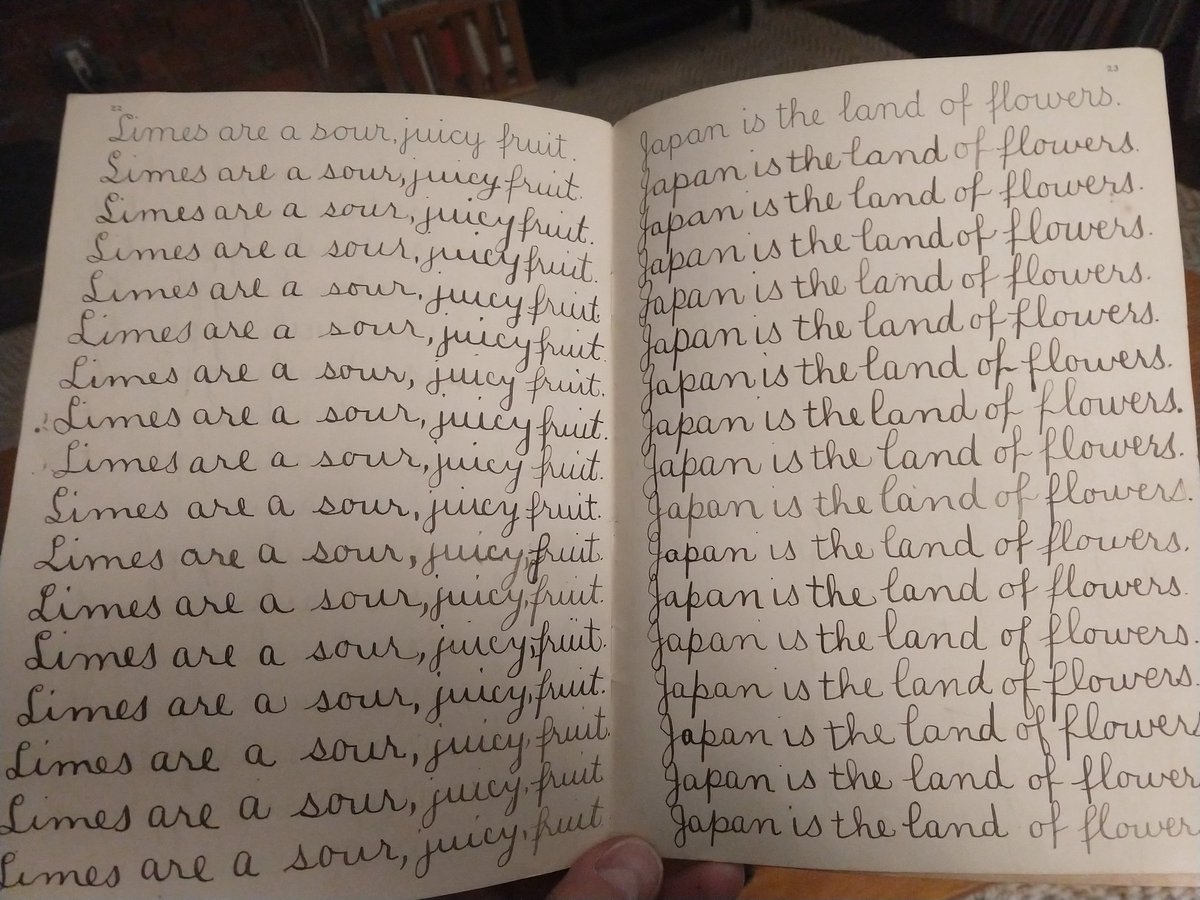 22
Limes are a sour, juicy fruit.
Limes are a sour, juicy fruit.
Limes are a sour, juicy fruit.
Limes are a sour, juicy fruit.
Limes are a sour, juicy fruit
Limes are a sour, juicy fruit.
Limes are a sour, juicy fruit.
Limes are a sour, juicy fruit.
Limes are a sour, juicy fruit.
Limes are a sour, juicy fruit.
Limes are a sour, juicy, fruit.
Limes are a sour, juicy, fruit.
Limes are a sour, juicy, fruit.
Limes are a sour, juicy, fruit.
Limes are a sour, juicy, fruit.
Limes are a sour, juicy, fruit
Limes are a sour, juicy, fruit
23
Japan is the land of flowers.
Japan is the land of flowers.
Japan is the land of flowers.
Japan is the land of flowers.
Japan is the land of flowers.
Japan is the land of flowers.
Japan is the land of flowers.
Japan is the land of flowers.
Japan is the land of flowers.
Japan is the land of flowers.
Japan is the land of flowers.
Japan is the land of flowers.
Japan is the land of flowers.
Japan is the land of flowers.
Japan is the land of flowers
Japan is the land of flower
Japan is the land of flower